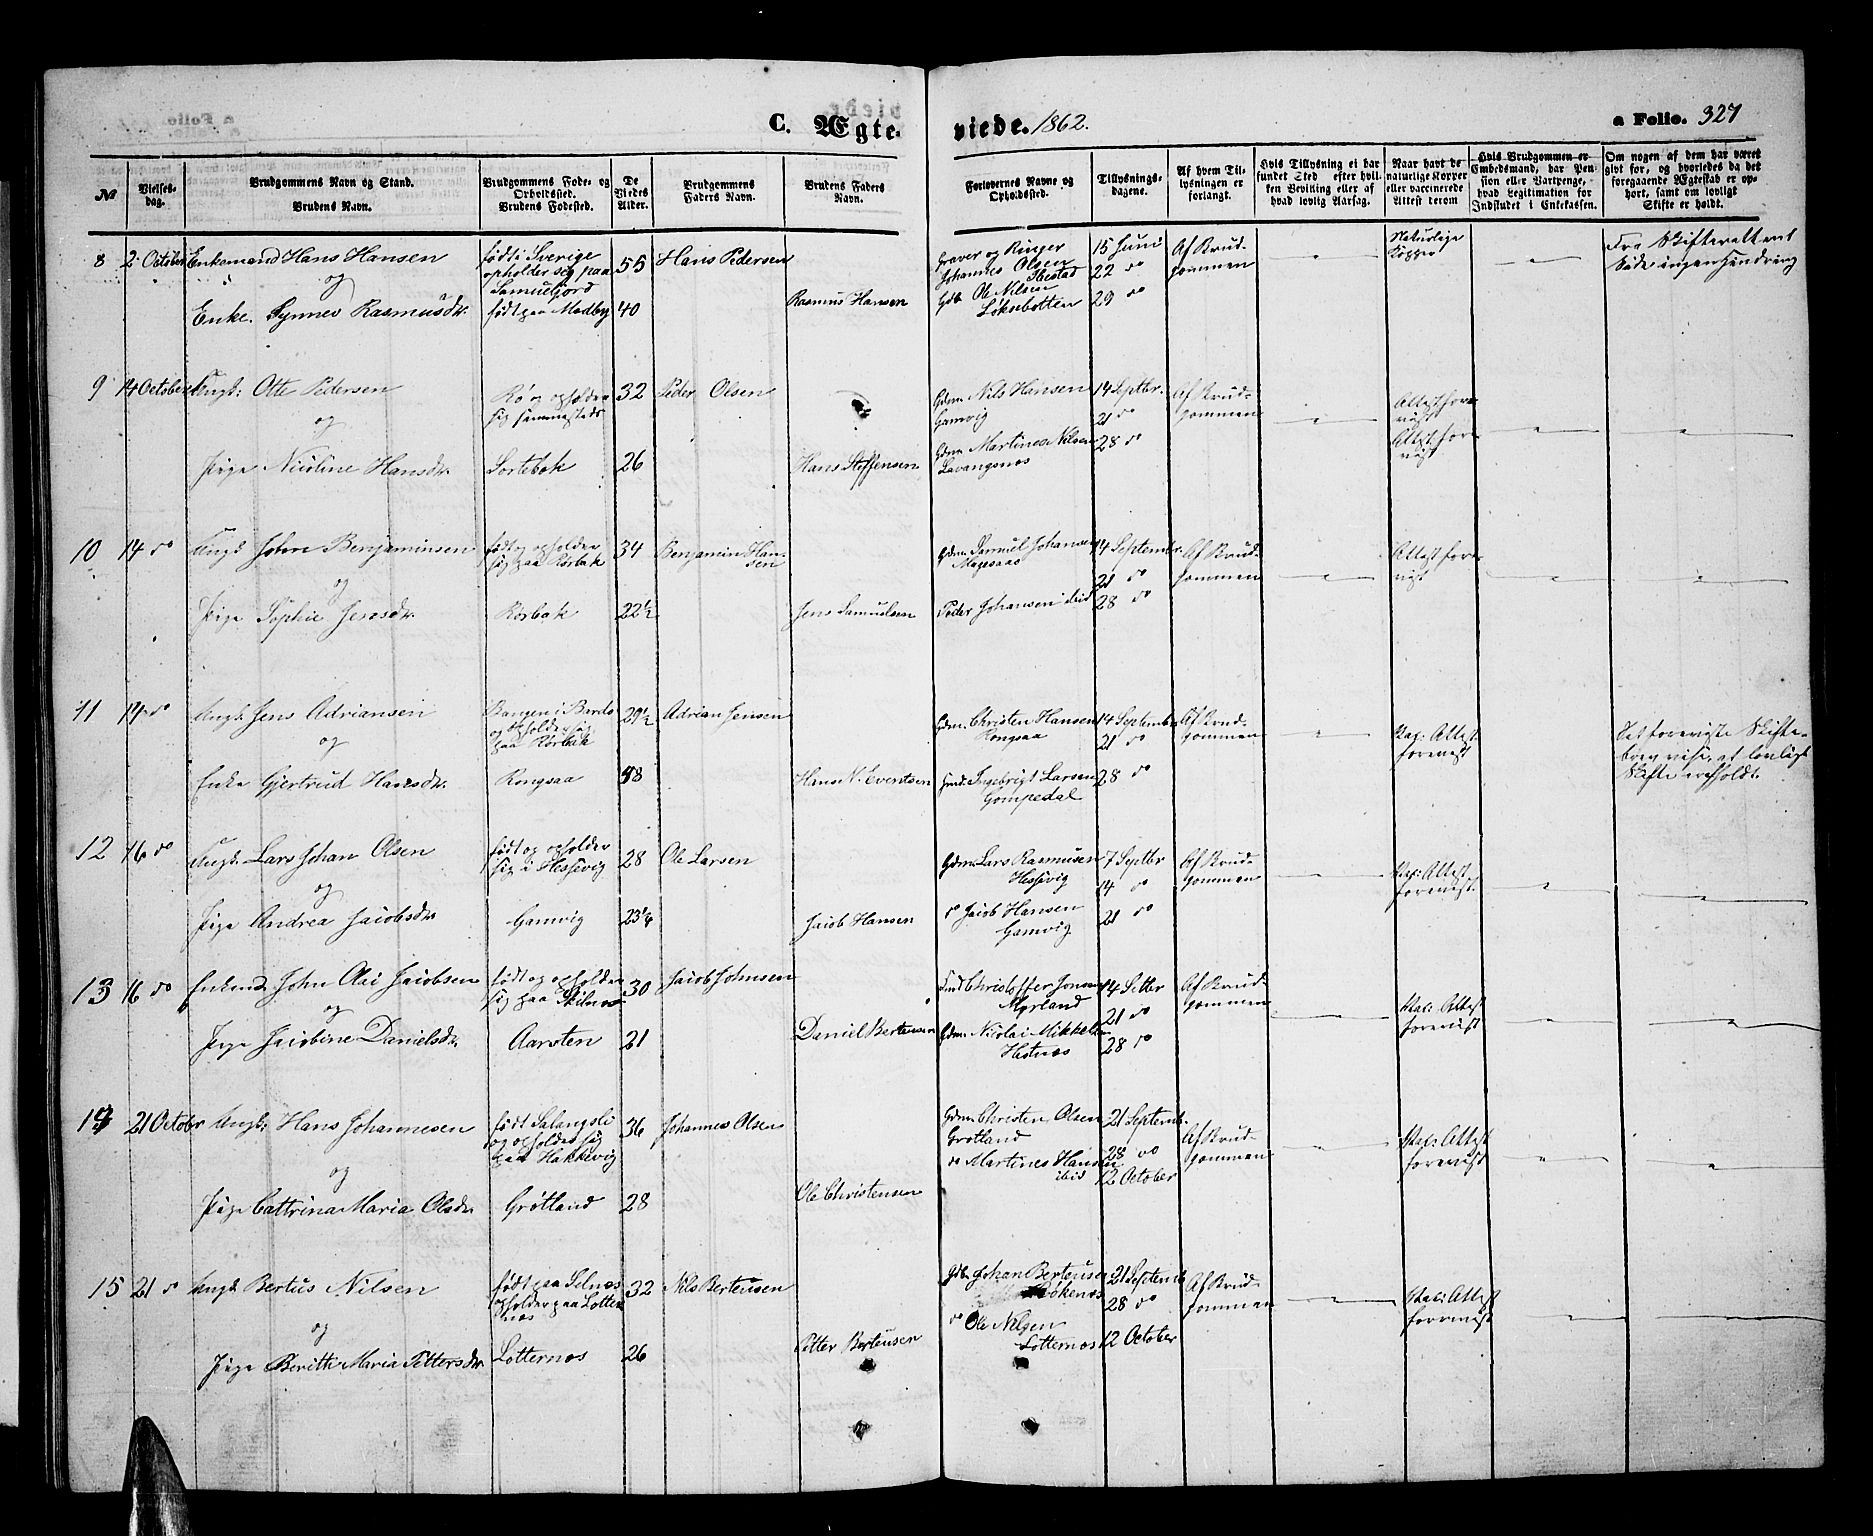 C. Ægte-
viede. 1862.
a Folio. 327
№
Vielses-
dag.
Brudgommens Navn og Stand.
Brudens Navn.
Brudgommens Føde- og
Opholdssted.
Brudens Fødested.
De
Viedes
Alder.
Brudgommens
Faders Navn.
Brudens Faders
Navn.
Forlovernes Navne og
Opholdssted.
Tillysnings-
dagene.
Af hvem Til-
lysningen er
forlangt.
Hvis Tillysning ei har
fundet Sted efter hvil-
ken Bevilling eller af
hvad lovlig Aarsag.
Naar havt de
naturlige Kopper
eller vaccinerede
Attest derom
Hvis Brudgommen er
Embedsmand, har Pen-
sion eller Vartpenge,
hvad Legitimation for
Indskudet i Enkekassen.
Om nogen af dem har været
givt for, og hvorledes da det
foregaaende Ægteskab er op-
hørt, samt om lovligt
Skifte er holdt.
8 2 October Enkemand Hans Hansen
og
Enke. Synnev Rasmusdr.
født i Sverige
opholder seg paa
født paa Medby
55
40
Hans Pedersen
Rasmus Hansen
Graver og Ringer
Johannes Olsen
Ibestad
Gdb. Ole Nilsen
Løksebotten
15 Juni
22 do
29 do
Af Brud-
gommen
Naturlige
Kopper
Fra Skifteretten
ingen hindring
9 14 October Ungk: Otte Pedersen
og
Pige Nicoline Hansdr.
Rø og opholder
sig sammesteds
Sortebak
32
26
Peder Olsen
Hans Steffensen
Gdm. Nils Hansen
Gamvig
Gdm. Martines Nilsen
Lavangsnæs
14 Septbr.
21 do
28 do
Af Brud-
gommen
Attest fore-
vist
Attest fore-
vist
10 14 do Ungk John Benjaminsen
og
Pige Sophie Jensdr.
født og opholder
sig paa Rørbak
Rørbak
34
22½
Benjamin Han-
sen
Jens Samuelsen
Gdm. Samuel Johansen
Peder Johansen ibid
14 Septembr.
21 do
28 do
Af Brud-
gommen
Attest fore-
vist
11 14 do Ungk. Jens Adriansen
og
Enke Gjertrud Hansdr.
og opholder sig
paa Rørbak
Rongsaa
29½
Adrian Jensen
Gdm. Christen Hansen
Rongsaa
Ingebrigt Larsen
Gompedal
14 Septembr
21 do
28 do
Af Brud-
gommen
Vac: Attest
forevist
Det foreviste Skifte-
brev viser, at lovligt
Skifte er afholdt.
12 16 do Ungk. Lars Johan Olsen
og
Pige Andrea Jacobsdr
født og opholder
sig i Hessevig
Gamvig
28
23¼
Ole Larsen
Jacob Hansen
Gdm. Lars Rasmusen
Hessevig
do Jacob Hansen
Gamvig
7 Septbr
14 do
21 do
Af Brud-
gommen
Vac: Attest
forevist.
13 16 do Enkemd John Olai Jacobsen
og
Pige Jacobine Danielsdr.
født og opholder
sig paa Skilnæs
Aarsten
30
21
Jacob Johnsen
Daniel Berteusen
Christoffer Jonsen
Myrland
Gdm. Nicolai Mikkelsen
Hestnæs
14 Septbr
21 do
28 do
Af Brud-
gommen
Vac: Attest
forevist
14 21 October Ungk. Hans Johannesen
og
Pige Cattrina Maria Olsdr.
født Salangsli
og opholder sig
paa Hakkevig
Grøtland
36
28
Johannes Olsen
Ole Christensen
Gdm. Christen Olsen
Grøtland
do Martines Hansen
ibid
21 Septembr.
28 do
12 October
Af Brud-
gommen
Vac: Attest
forevist
15 21 do Ungk Bertus Nilsen
og
Pige Beritte Maria Pettersdr.
født paa Selnæs
opholder paa Lotter-
næs
Lotternæs
32
26
Nils Berteusen
Petter Berteusen
Gdb. Johan Berteusen
do Ole Nilsen
Lotternæs
21 Septembr
28 do
12 October
Af Brud-
gommen
Vac: Attest
forevist